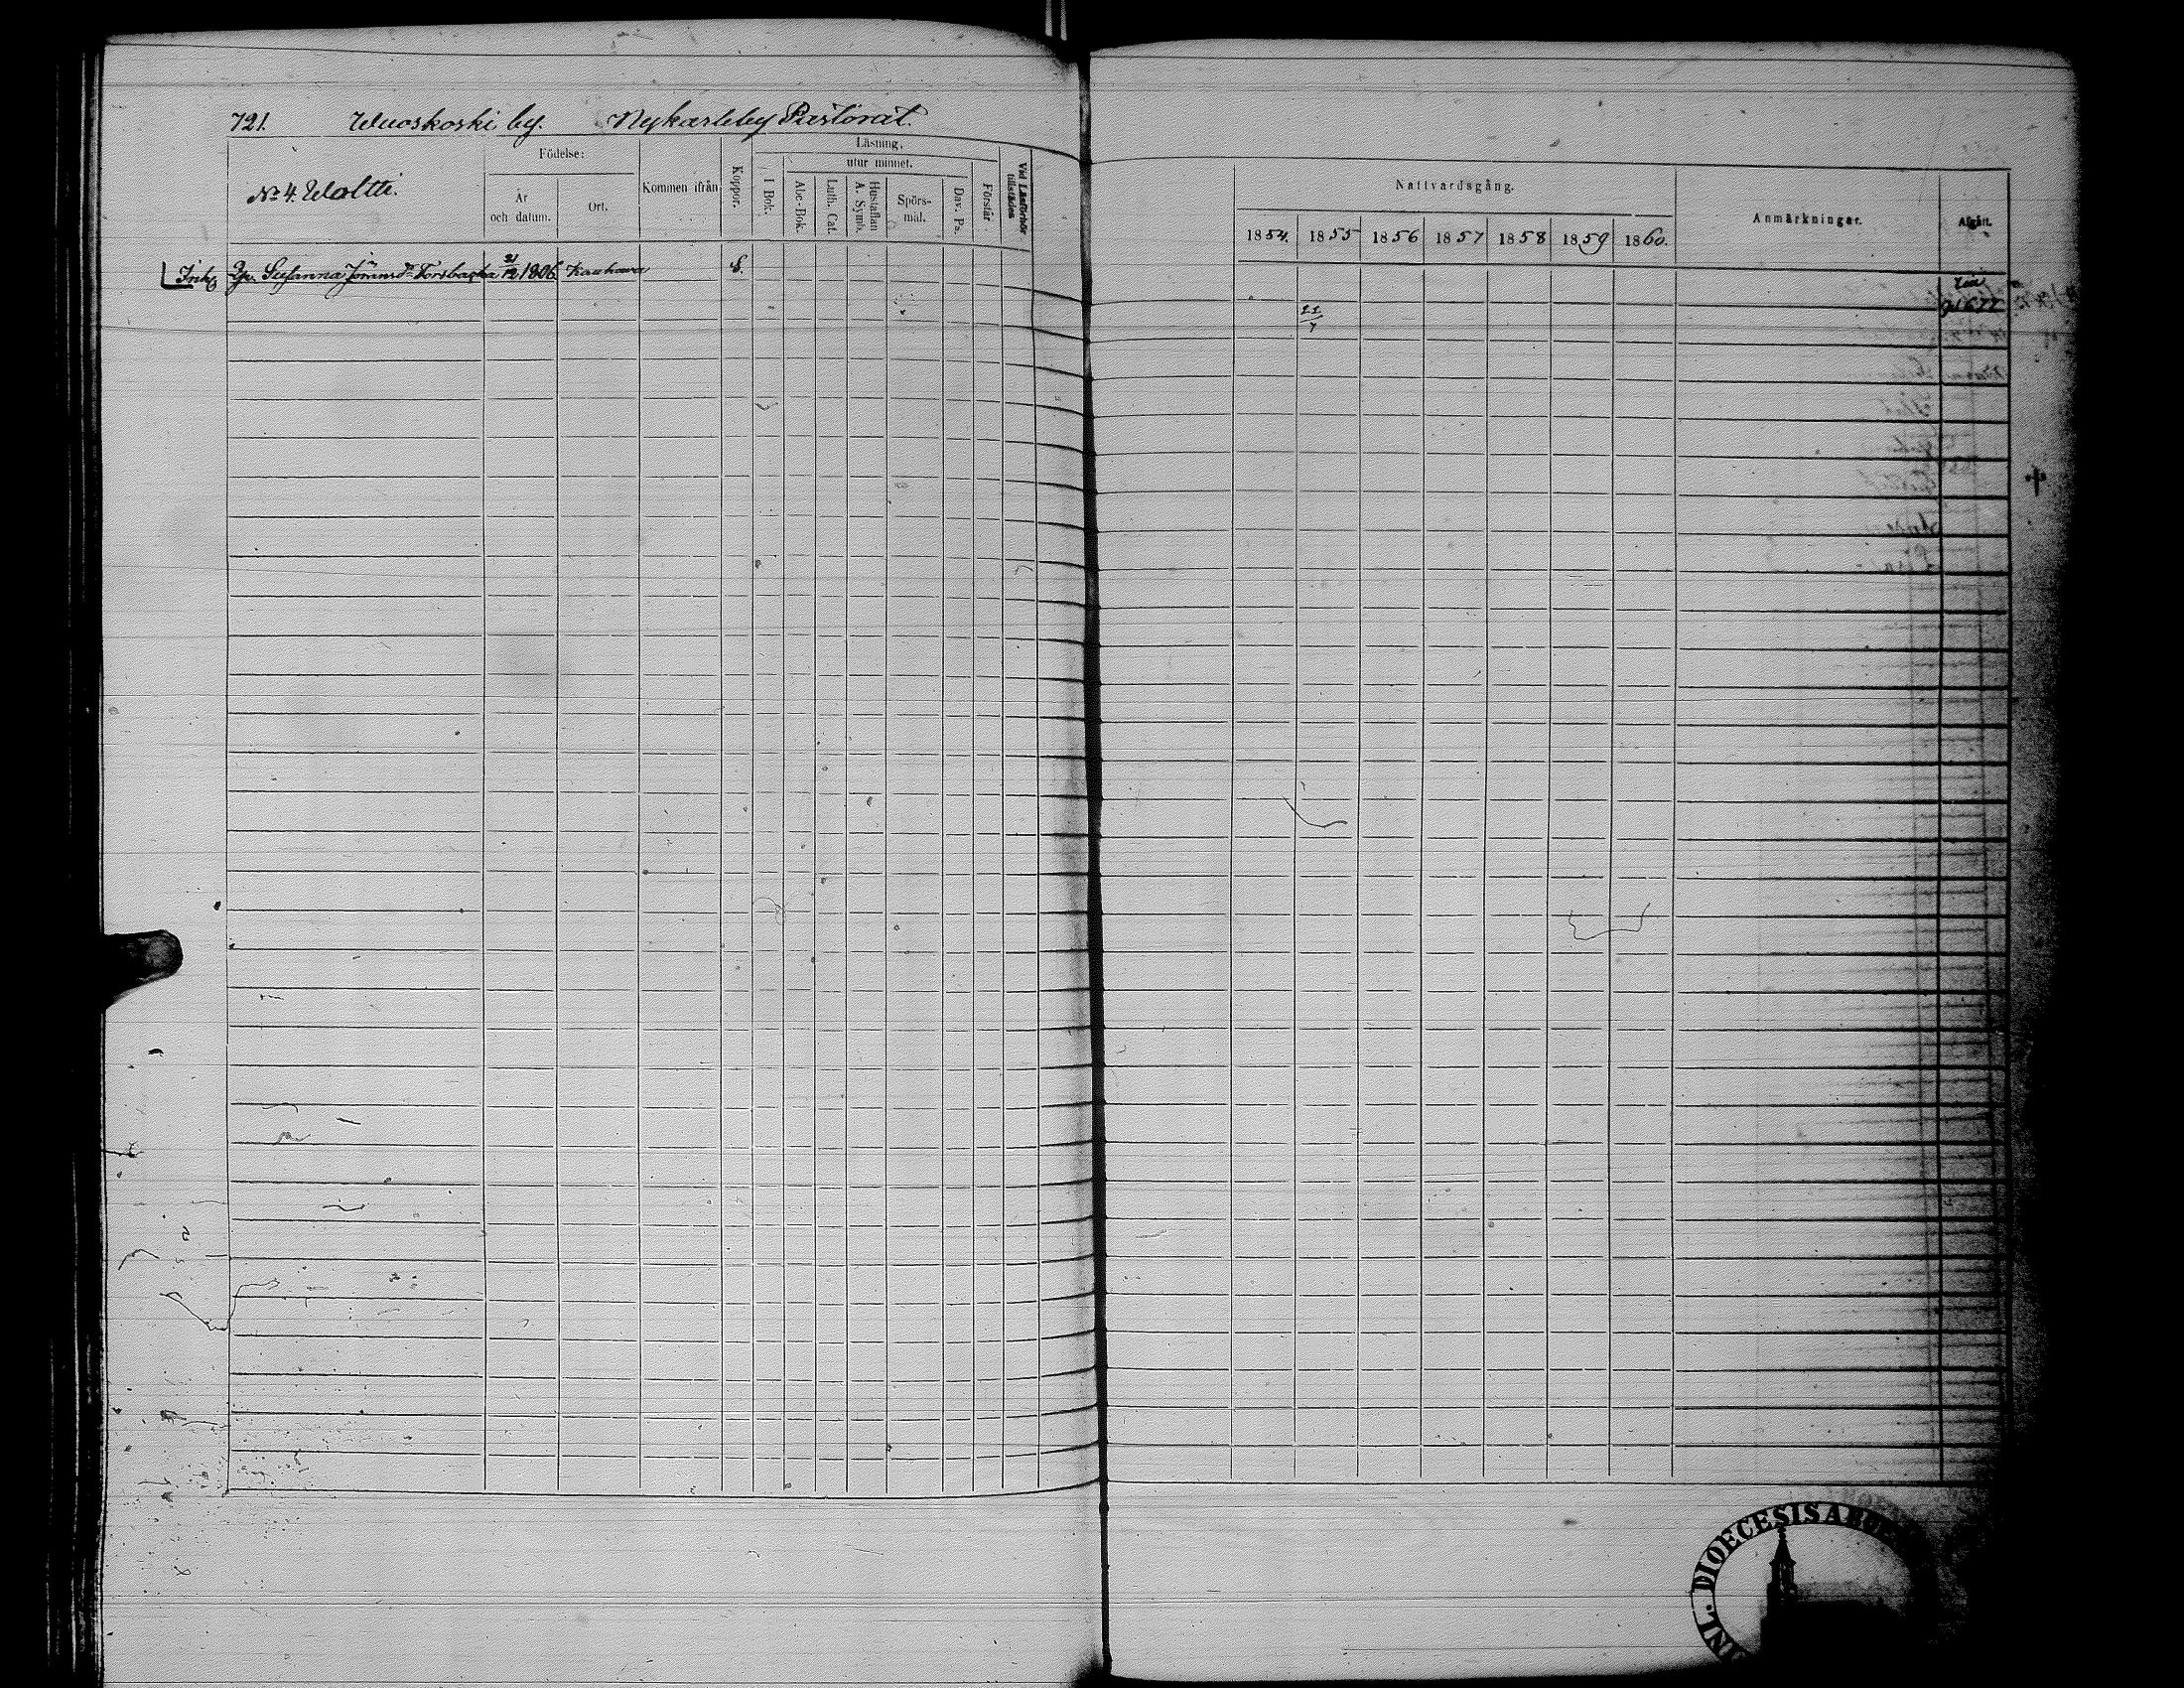 721. Wuoskoski by. Nykarleby Pastorat.
Nº 4. Woltti.
Födelse:
År och datum.
Ort.
Kommen ifrån
Koppor.
Läsning.
I Bok.
utur minnet.
Abc-Bok.
Luth. Cat.
Hustaflan A. Symb.
Spörs-mål.
Dav. Ps.
Förstår
Vid Läsförhör tillstädes
Susanna Forsbacka 21/12 1806 Kauhava
Nattvardsgång.
1854. 1855 1856 1857 1858 1859 1860.
Anmärkningar.
Afgått.
DIOECESIS